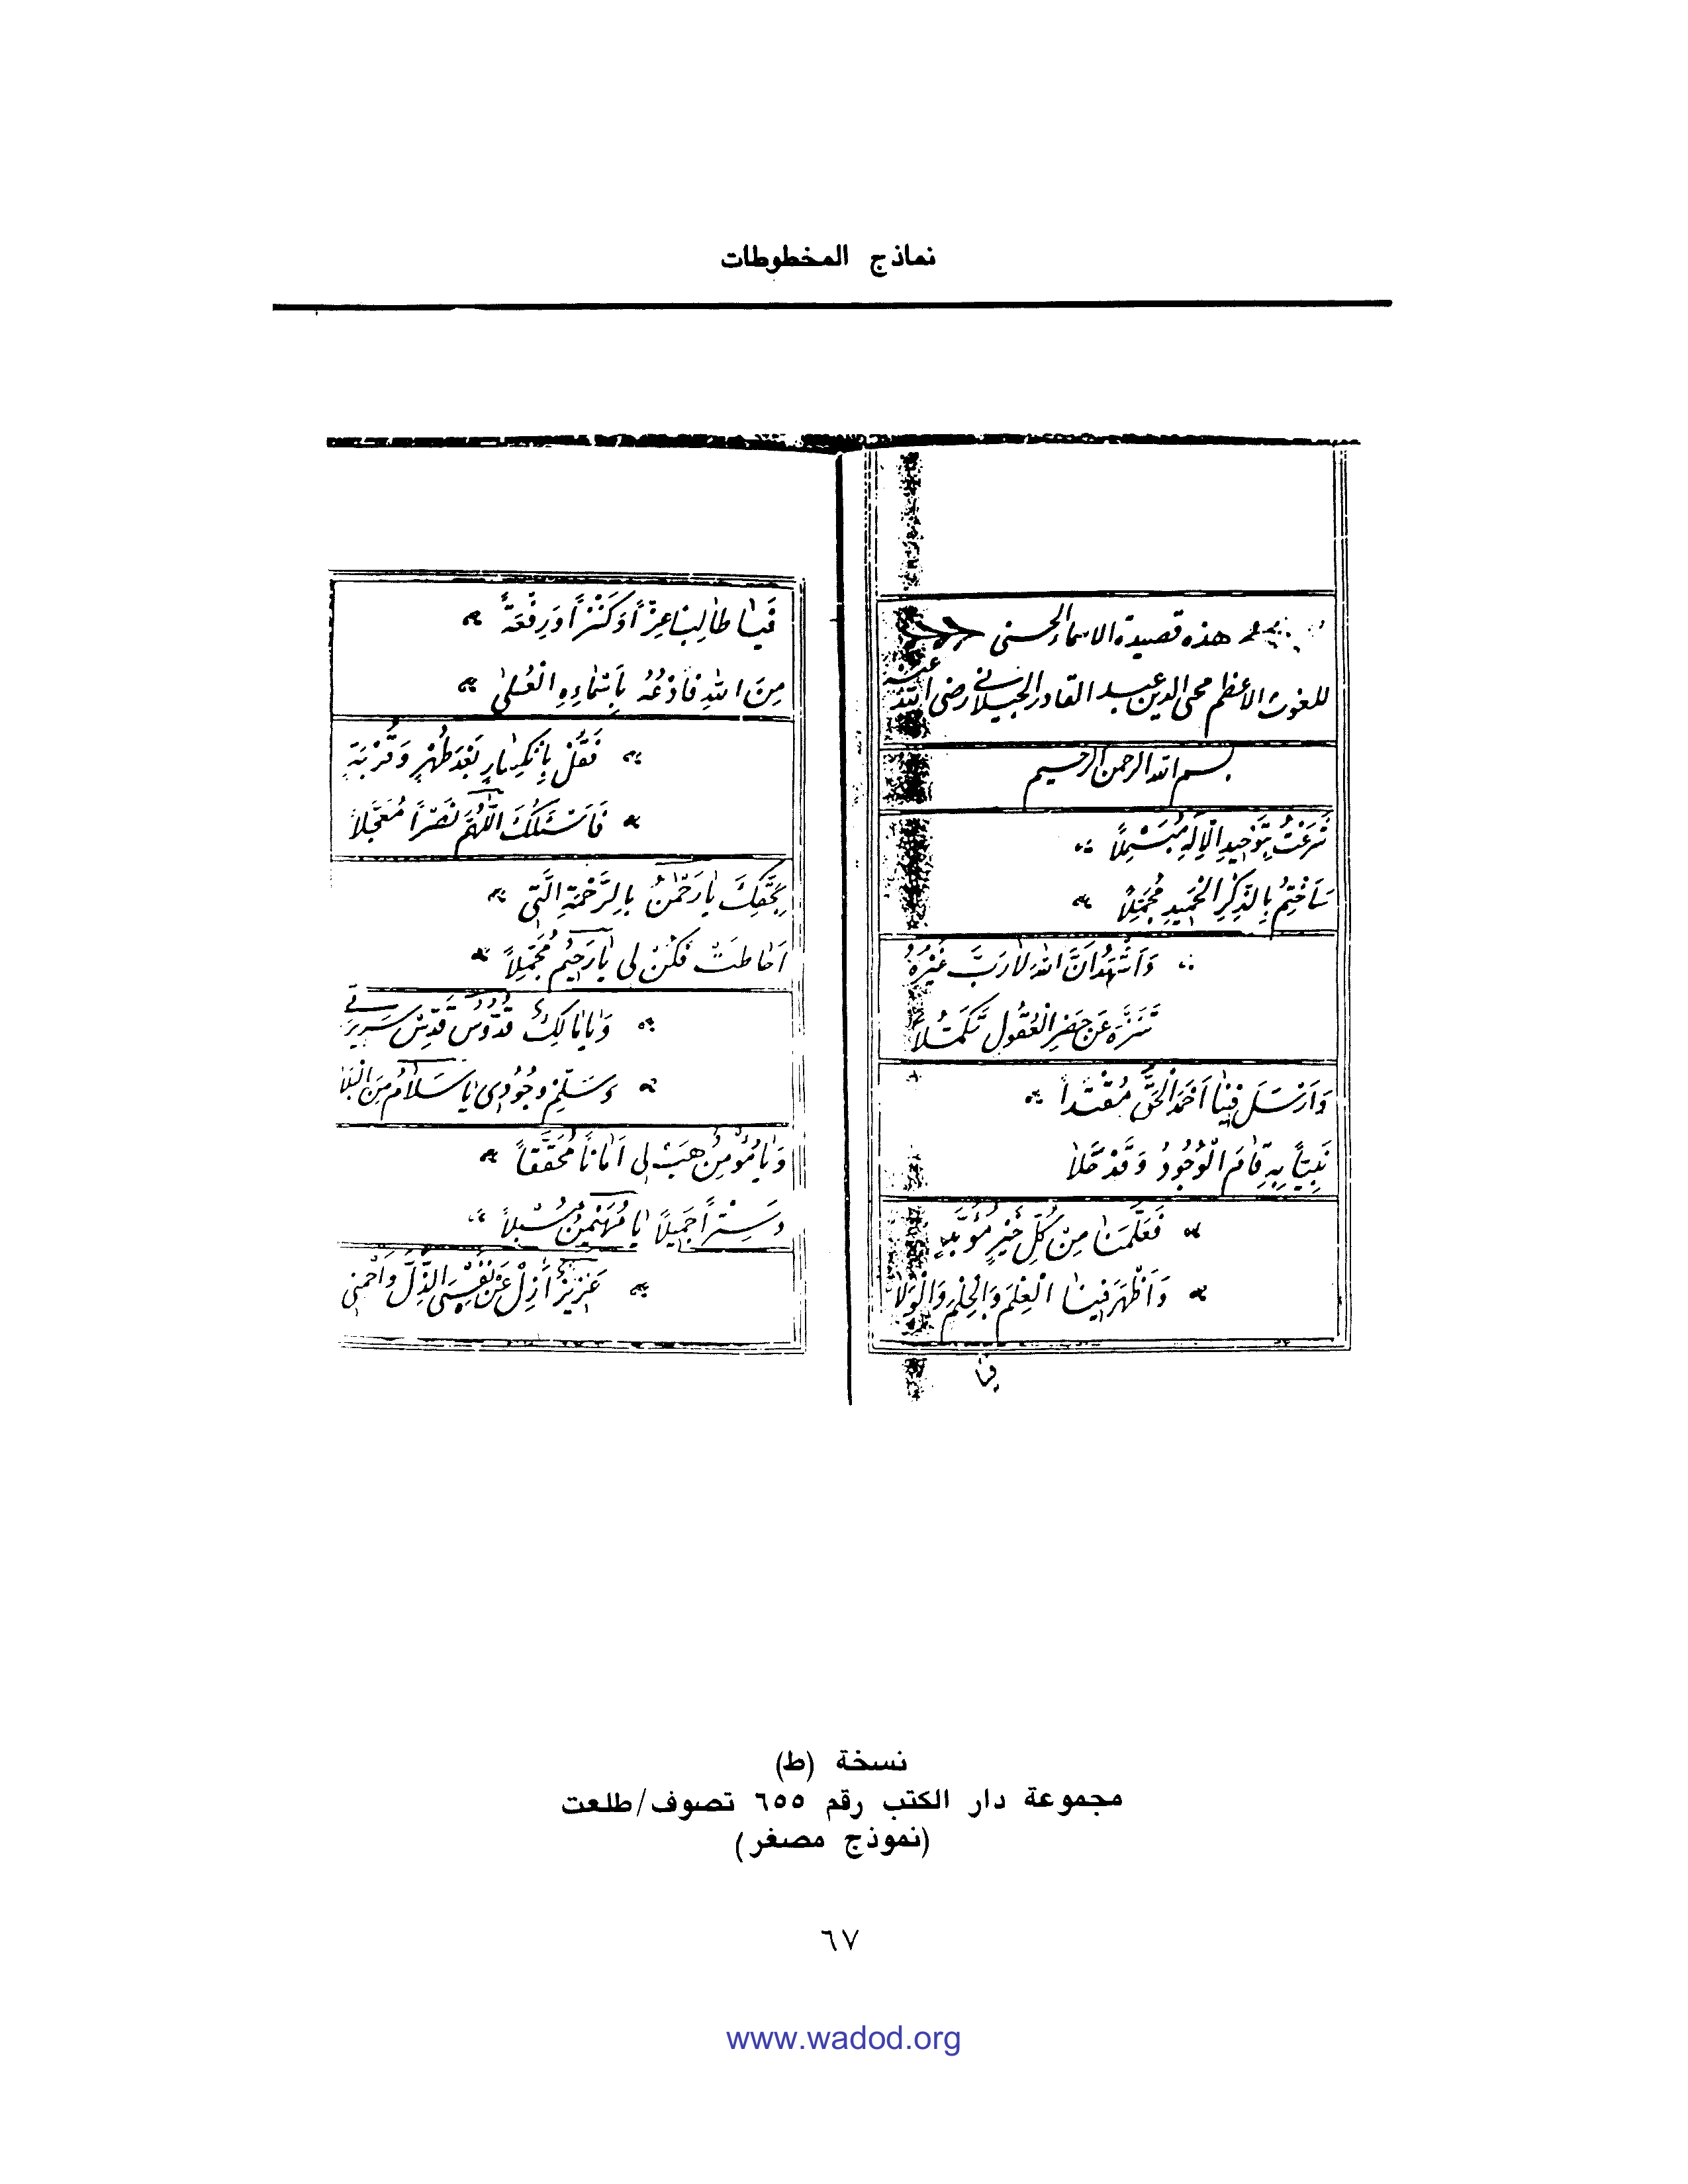 نماذج المخطوطات
هذه قصيدة الاسماء الحسنى
للغوث الاعظم محى الدين عبد القادر الجيلاني رضى الله عنه
بسم الله الرحمن الرحيم
شَرَعْتُ بِتَوْحِيدِ الْاِلٰهِ مُبَسْمِلاً
سَاَخْتِمُ بِالذِّكْرِ الْحَمِيدِ مُجَمِّلاً
وَاَشْهَدُ اَنَّ اللهَ لَا رَبَّ غَيْرُهُ
تَنَزَّهَ عَنْ حَصْرِ الْعُقُولِ تَكَمُّلاً
وَاَرْسَلَ فِينَا اَحْمَدَ الْحَقِّ مُقْتَدًا
نَبِيّاً بِهِ قَامَ الْوُجُودُ وَقَدْ خَلَا
فَعَلَّمَنَا مِنْ كُلِّ خَيْرٍ مُؤَبَّدٍ
وَاَظْهَرَ فِينَا الْعِلْمَ وَالْحِلْمَ وَالْوَلَا
فيا
فَيَا طَالِبًا عِزّاً وَكَنْزاً وَرِفْعَةً
مِنَ اللهِ فَادْعُهُ بِاَسْمَاءِهِ الْعُلىٰ
فَقُلْ بِانْكِسَارٍ بَعْدَ طُهْرٍ وَقُرْبَةٍ
فَاَسْئَلُكَ اللّٰهُمَّ نَصْراً مُعَجَّلاً
بِحَقِّكَ يَا رَحْمٰنُ بِالرَّحْمَةِ الَّتِى
اَحَاطَتْ فَكُنْ لِى يَا رَحِيمُ مُجَمِّلاً
وَيَا مَالِكُ قُدُّوسُ قَدِّسْ سَرِيرَتِى
وَسَلِّمْ وُجُودِى يَا سَلَامُ مِنَ الْبَلَا
وَيَا مُؤْمِنُ هَبْ لِى اَمَانًا مُحَقَّقاً
وَسِتْراً جَمِيلاً يَا مُهَيْمِنُ مُسْبَلاً
عَزِيزٌ اَزِلْ عَنْ نَفْسِىَ الذُّلَّ وَاحْمِنِى
نسخة (ط)
مجموعة دار الكتب رقم ٦٥٥ تصوف/طلعت
(نموذج مصغر)
٦٧
www.wadod.org